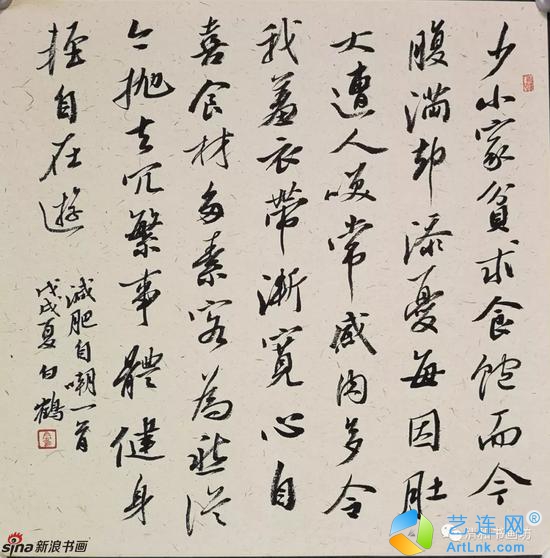 少小家貧求食飽而今
腹滿却添憂每因肚
大遭人咲常感肉多令
我羞衣帶漸寬心自
喜食材多素客為愁從
今抛去冗繁事體健身
輕自在遊
減肥自嘲一首
戊戌夏 白鶴
sina新浪书画
清和书画坊
艺连网
ArtLnk.com